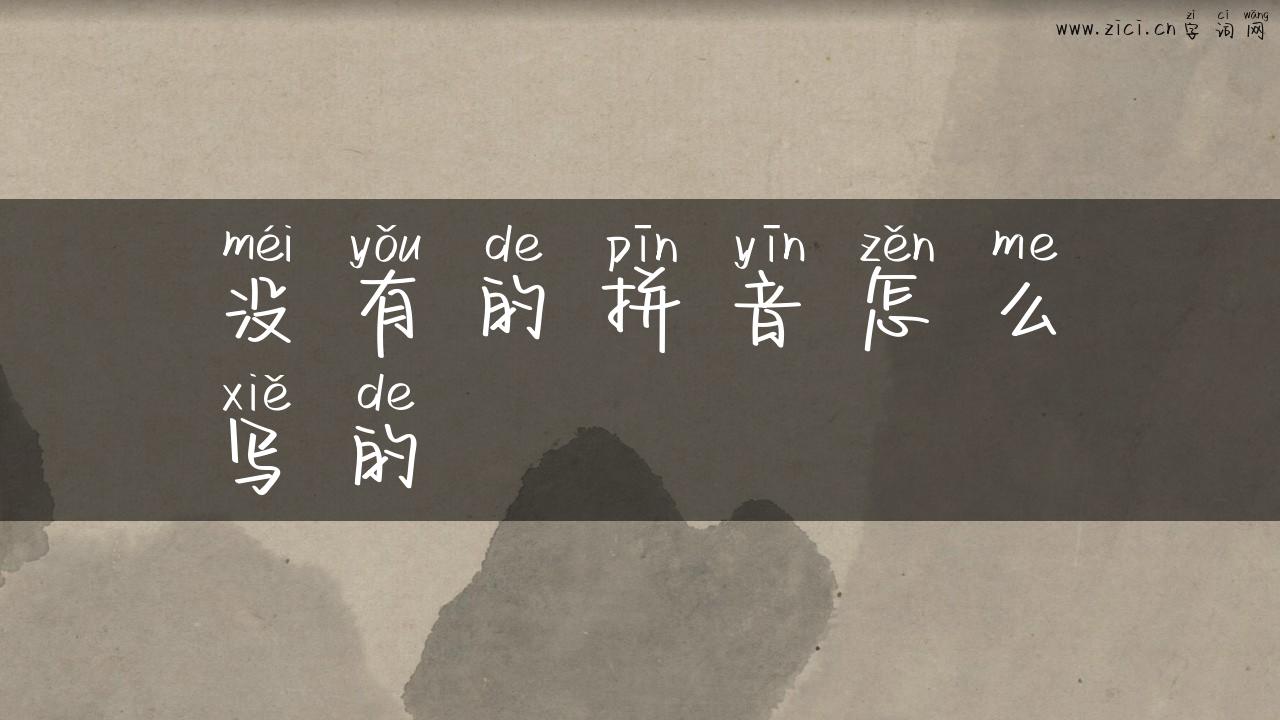 zì cí wǎng
www.zici.cn 字 词 网
méi yǒu de pīn yīn zěn me
没 有 的 拼 音 怎 么
xiě de
写 的